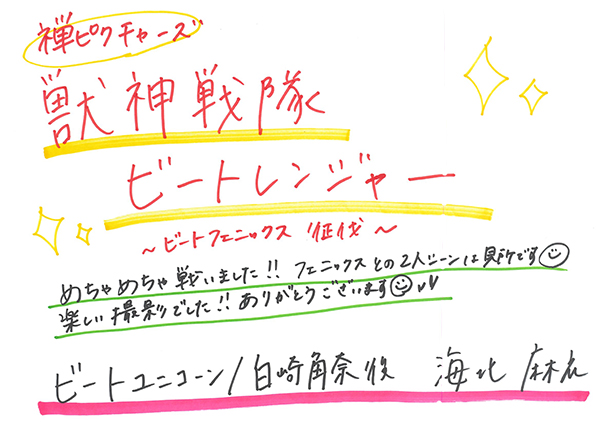 禅ピクチャーズ
獣神戦隊
ビートレンジャー
～ビートフェニックス 征伐～
めちゃめちゃ戦いました!! フェニックスとの2人シーンは見所です
楽しい撮影でした!! ありがとうございます
ビートユニコーン/白崎角奈役 海北麻衣